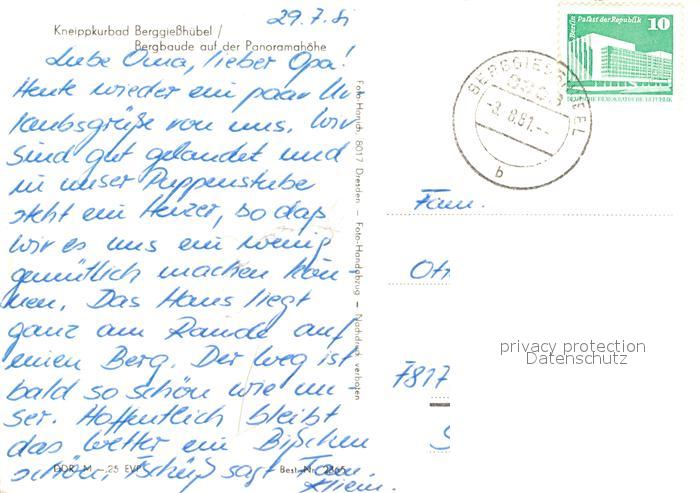 29.7.81
Kneippkurbad Berggießhübel /
Bergbaude auf der Panoramahöhe
Liebe Oma, lieber Opa!
Heute wieder ein paar Ur
laubsgrüße von uns. Wir
sind gut gelandet und
in unser Puppenstube
steht ein Heizer, so daß
wir es uns ein wenig
gemütlich machen kön-
nen. Das Haus liegt
ganz am Rande auf
einen Berg. Der Weg ist
bald so schön wie un-
ser. Hoffentlich bleibt
das Wetter ein Bißchen
schön, Tschüß sagt Fam.
DDR M -,25 EVP
Best.-Nr. 2865
Foto-Hanich, 8017 Dresden – Foto-Handabzug – Nachdruck verboten
Berlin Palast der Republik 10
DEUTSCHE DEMOKRATISCHE REPUBLIK
BERGGIESSHÜBEL
-3.8.81.--
b
Fam.
Ott
7817
S
privacy protection
Datenschutz